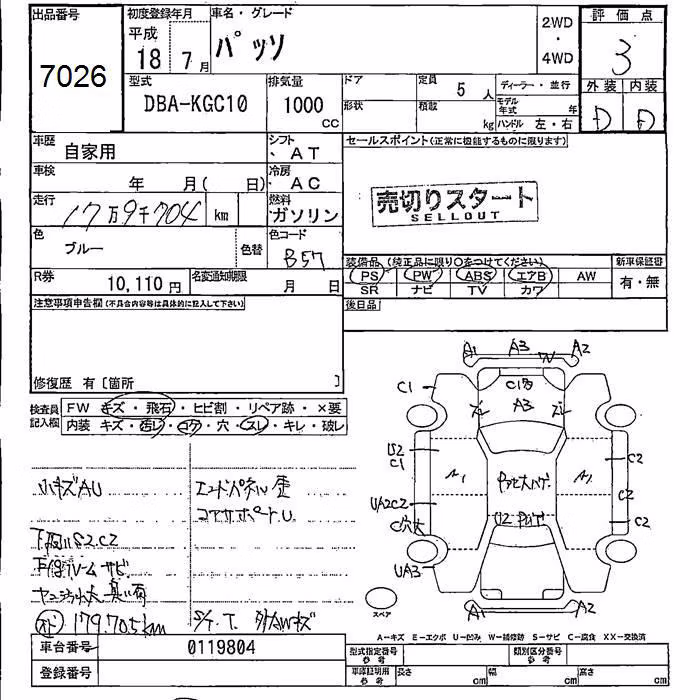 出品番号
7026
初度登録年月
平成
18年 7月
車名・グレード
パッソ
2WD
・
4WD
評価点
3
外装 内装
D D
型式
DBA-KGC10
排気量
1000
CC
ドア
形状
定員
5 人
積載
kg
ディーラー・並行
モデル年式 年
ハンドル 左・右
車歴
自家用
シフト
AT
車検
年 月( 日)
冷房
AC
走行
17万9千704 km
燃料
ガソリン
色
ブルー
色替
色コード
B57
R券
10,110円
名変通知期限
月 日
セールスポイント(正常に機能するものに限ります)
売切りスタート
SELLOUT
装備品 (純正品に限り〇をつけてください)
PS PW ABS エアB AW
SR ナビ TV カワ
新車保証書
有・無
後日品
注意事項申告欄(不具合内容等は具体的に記入して下さい)
修復歴 有〔箇所 〕
検査員
記入欄
FW キズ・飛石・ヒビ割・リペア跡・×要
内装 キズ・汚レ・コゲ・穴・スレ・キレ・破レ
小キズAU
エンドパネル歪
コアサポートU
下廻りS2.C2
179.705km
S/T.T.
A1 A3 A2
W
C1
A3
S2
C1
A1
UA2C2
UA3
C2
C2
C2
A1 A2
スペア
A－キズ E－エクボ U－凹み W－補修跡 S－サビ C－腐食 XX－交換済
車台番号
0119804
登録番号
型式指定番号
参考
類別区分番号
参考
車庫証明用
参考
長さ cm
幅 cm
高さ cm